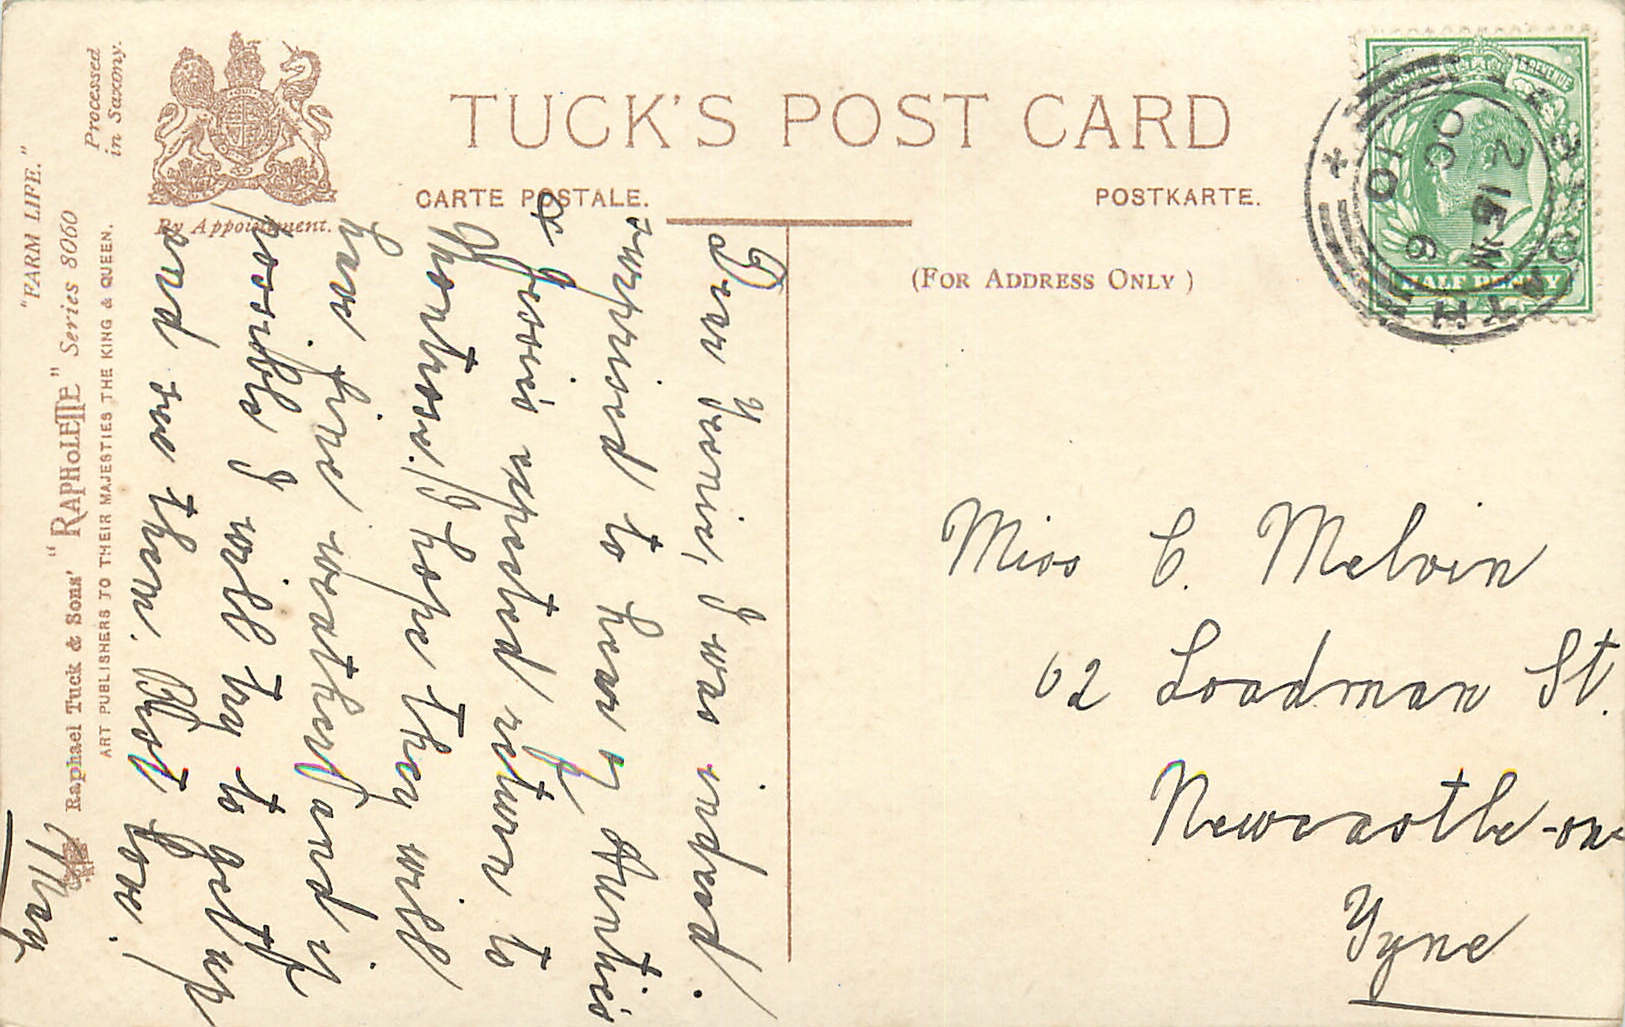 TUCK'S POST CARD
CARTE POSTALE.
POSTKARTE.
(FOR ADDRESS ONLY)
By Appointment.
Processed
in Saxony.
"FARM LIFE."
Raphael Tuck & Sons' "RAPHOLETTE" Series 8060
ART PUBLISHERS TO THEIR MAJESTIES THE KING & QUEEN.
POSTAGE & REVENUE
HALF PENNY
2 15 PM
OC 10
6
Dear Teenie, I was indeed
surprised to hear of Aunties
& Jessie's expected return to
Montrose. I hope they will
have fine weather and if
possible I will try to get up
and see them. Best love!
May
Miss C. Melvin
62 Loadman St.
Newcastle-on-
Tyne